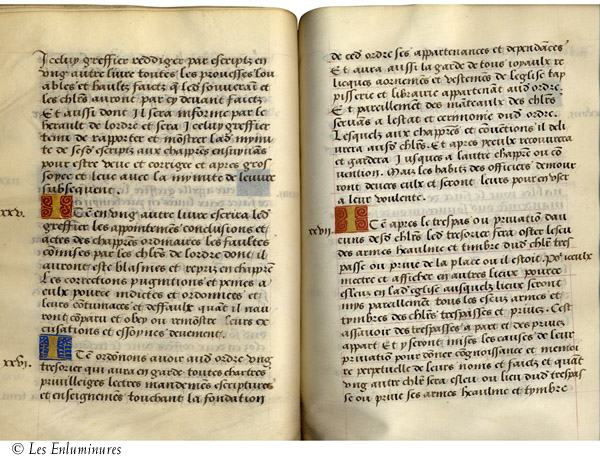 Icelluy greffier reddiger par escriptz en
vng autre livre toutes les prouesses lou
ables et haultz faictz q̄ led souverain et
les chl̄rs auront par cy devant faictz
Et aussi dont il sera informe par le
herault de lordre et sera Icelluy greffier
tenu de rapporter et mōstrer lad mynu
te de sesd escriptz aux chappr̄es ensuivans
pour estre veue et corrigee et apres gros
soyee et leue avec la mynute de leuure
subsequent.
xxv. ITē en vng autre livre escrira led
greffier les appointemēs conclusions et
actes des chappr̄es ordinaires les faultes
cōmises par les chl̄rs de lordre dont il
auront este blasmes et repris en chappr̄e
Les corrections pugnitions et peines a
eulx pource indictes et ordonnees et
leurs cōtumaces et deffaulx quāt il nau
ront cōparu et obey ou remōstre leurs ex
cusations et essoynes deuement.
xxvi. ITē ordonons avoir aud ordre vng
tresorier qui aura en garde toutes chartres
privilleiges lectres mandemēs escriptures
et enseignemēs touchant la fondation
de ced ordre ses appartenances et dependāces
Et aura aussi la garde de tous ioyaulx re
licques aornemēs et vestemēs de leglise tap
pisserie et librairie appartenāt aud ordre.
Et pareillement des māteaulx des chl̄rs
servās a lestat et cerimonie dud ordre.
Lesquelz aux chappr̄es et cōvētions il deli
vrera ausd chl̄rs. Et apres yceulx recouvrera
et gardera Jusques a lautre chappr̄e ou cō
vention. Mais les habits des officiers demour
ront devers eulx et seront leurs pour en vser
a leur voulente.
xxvii. ITē apres le trespas ou privatiō dau
cuns desd chl̄rs led tresorier fera oster lescu
des armes heaulme et timbre dud chl̄r tres
passe ou prive de la place ou il estoit. Po² iceulx
mectre et afficher en autres lieux pource
esleuz en lad eglise ausquelz lieux seront
mys pareillement tous les escuz armes et
tymbres des chl̄rs trespasses et privez. Cest
assavoir des trespasses a part et des privez
appart Et y seront mises les causes de leur
privatiō pour dōner cognoissance et memoi
re perpetuelle de leurs noms et faictz et quāt
vng autre chl̄r sera esleu ou lieu dud trespas
se ou prive ses armes heaulme et tymbre
© Les Enluminures